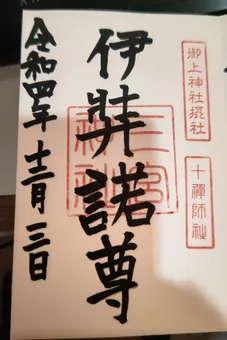 御上神社摂社
十禅師社
三宮神社
伊弉諾尊
令和四年十二月三日